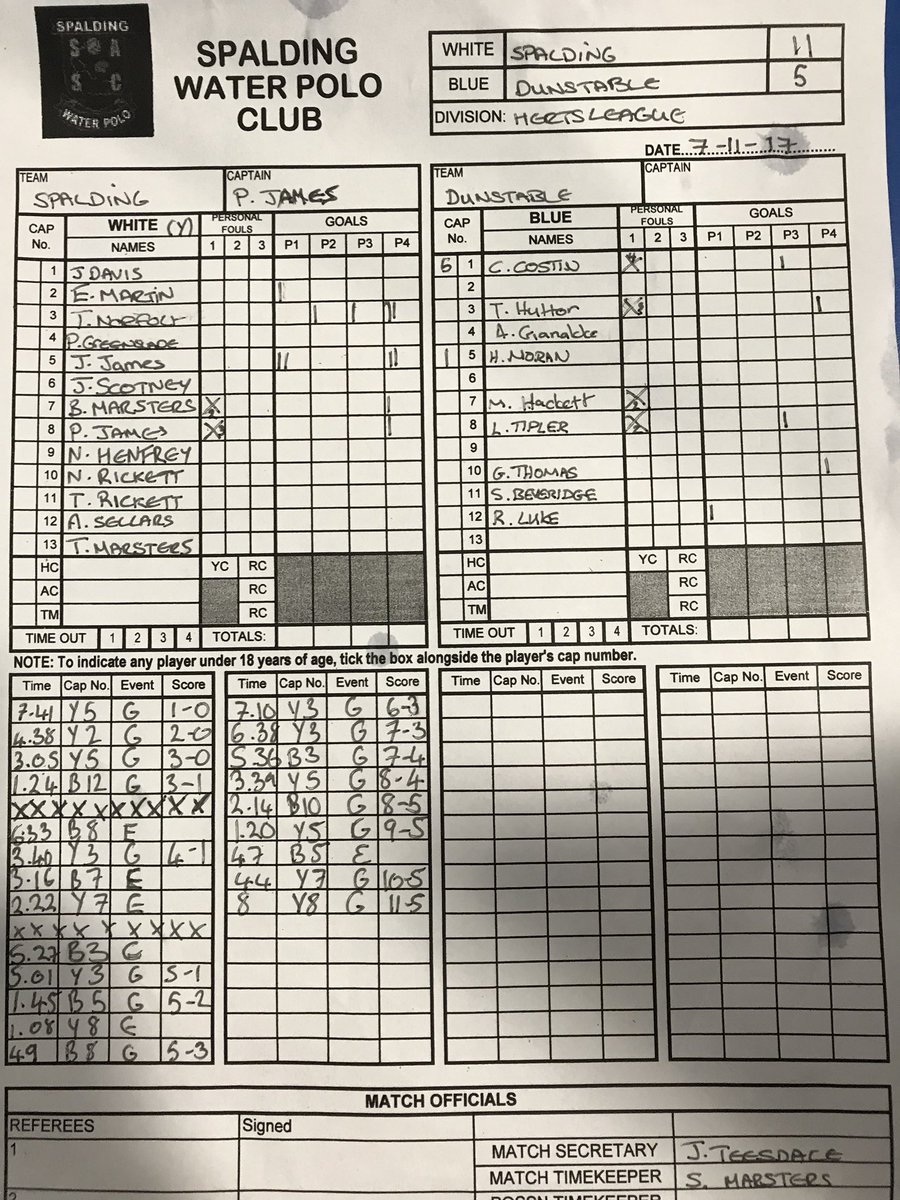 SPALDING
S A
S C
WATER POLO
SPALDING
WATER POLO
CLUB
WHITE SPALDING 11
BLUE DUNSTABLE 5
DIVISION: HERTS LEAGUE
DATE 7-11-17
TEAM CAPTAIN
SPALDING P. JAMES
CAP No. WHITE (Y) NAMES PERSONAL FOULS 1 2 3 GOALS P1 P2 P3 P4
1 J DAVIS
2 E. MARTIN I
3 T. NORFOLK I I II
4 P. GREENSLADE
5 J. James II II
6 J. SCOTNEY
7 B. MARSTERS X2 I
8 P. JAMES X3 I
9 N. HENFREY
10 N. RICKETT
11 T. RICKETT
12 A. SELLARS
13 T. MARSTERS
HC YC RC
AC RC
TM RC
TIME OUT 1 2 3 4 TOTALS:
TEAM CAPTAIN
DUNSTABLE
CAP No. BLUE NAMES PERSONAL FOULS 1 2 3 GOALS P1 P2 P3 P4
5 1 C. COSTIN X4 I
2
3 T. Hutton X3 I
4
1 5 H. MORAN
6
7 M. Hackett X2
8 L. TIPLER X2 I
9
10 G. THOMAS I
11 S. BEVERIDGE
12 R. LUKE I
13
HC YC RC
AC RC
TM RC
TIME OUT 1 2 3 4 TOTALS:
NOTE: To indicate any player under 18 years of age, tick the box alongside the player's cap number.
Time Cap No. Event Score
7.41 Y5 G 1-0
4.38 Y2 G 2-0
3.05 Y5 G 3-0
1.24 B12 G 3-1
XXXXXXXXXX
6.33 B8 E
3.40 Y3 G 4-1
3.16 B7 E
2.22 Y7 E
XXXXXXXXX
5.27 B3 E
5.01 Y3 G 5-1
1.45 B5 G 5-2
1.08 Y8 E
49 B8 G 5-3
Time Cap No. Event Score
7.10 Y3 G 6-3
6.38 Y3 G 7-3
5.36 B3 G 7-4
3.39 Y5 G 8-4
2.14 B10 G 8-5
1.20 Y5 G 9-5
47 B5 E
44 Y7 G 10-5
8 Y8 G 11-5
Time Cap No. Event Score
Time Cap No. Event Score
MATCH OFFICIALS
REFEREES Signed
1
MATCH SECRETARY J. TEESDALE
MATCH TIMEKEEPER S. MARSTERS